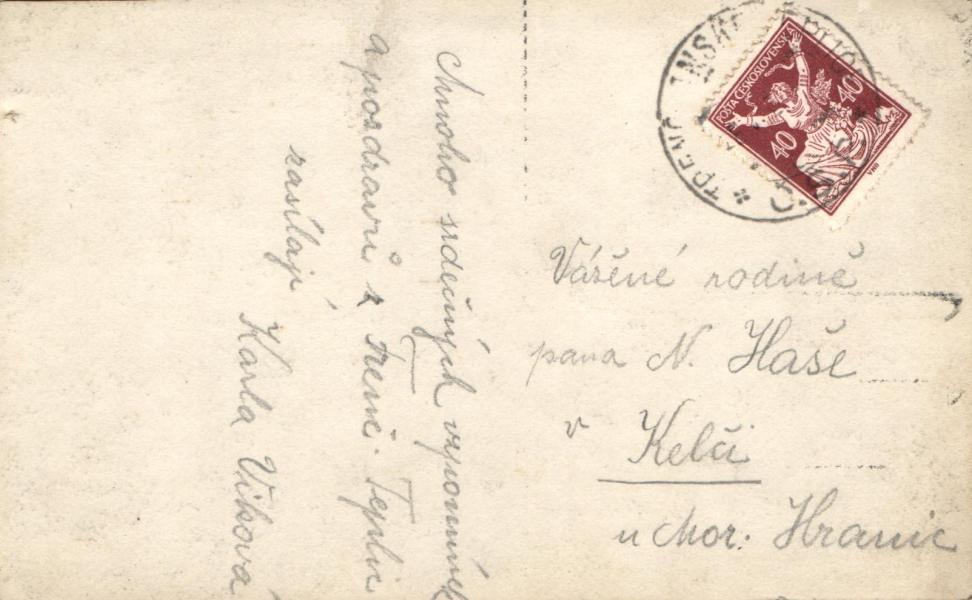 Mnoho srdečných vzpomínek
a pozdravů z Trenč. Teplic
zasílají
Karla Vlková
POŠTA ČESKOSLOVENSKÁ
40 40
Vážené rodině
pana N. Haše
v Kelči
u Mor. Hranic